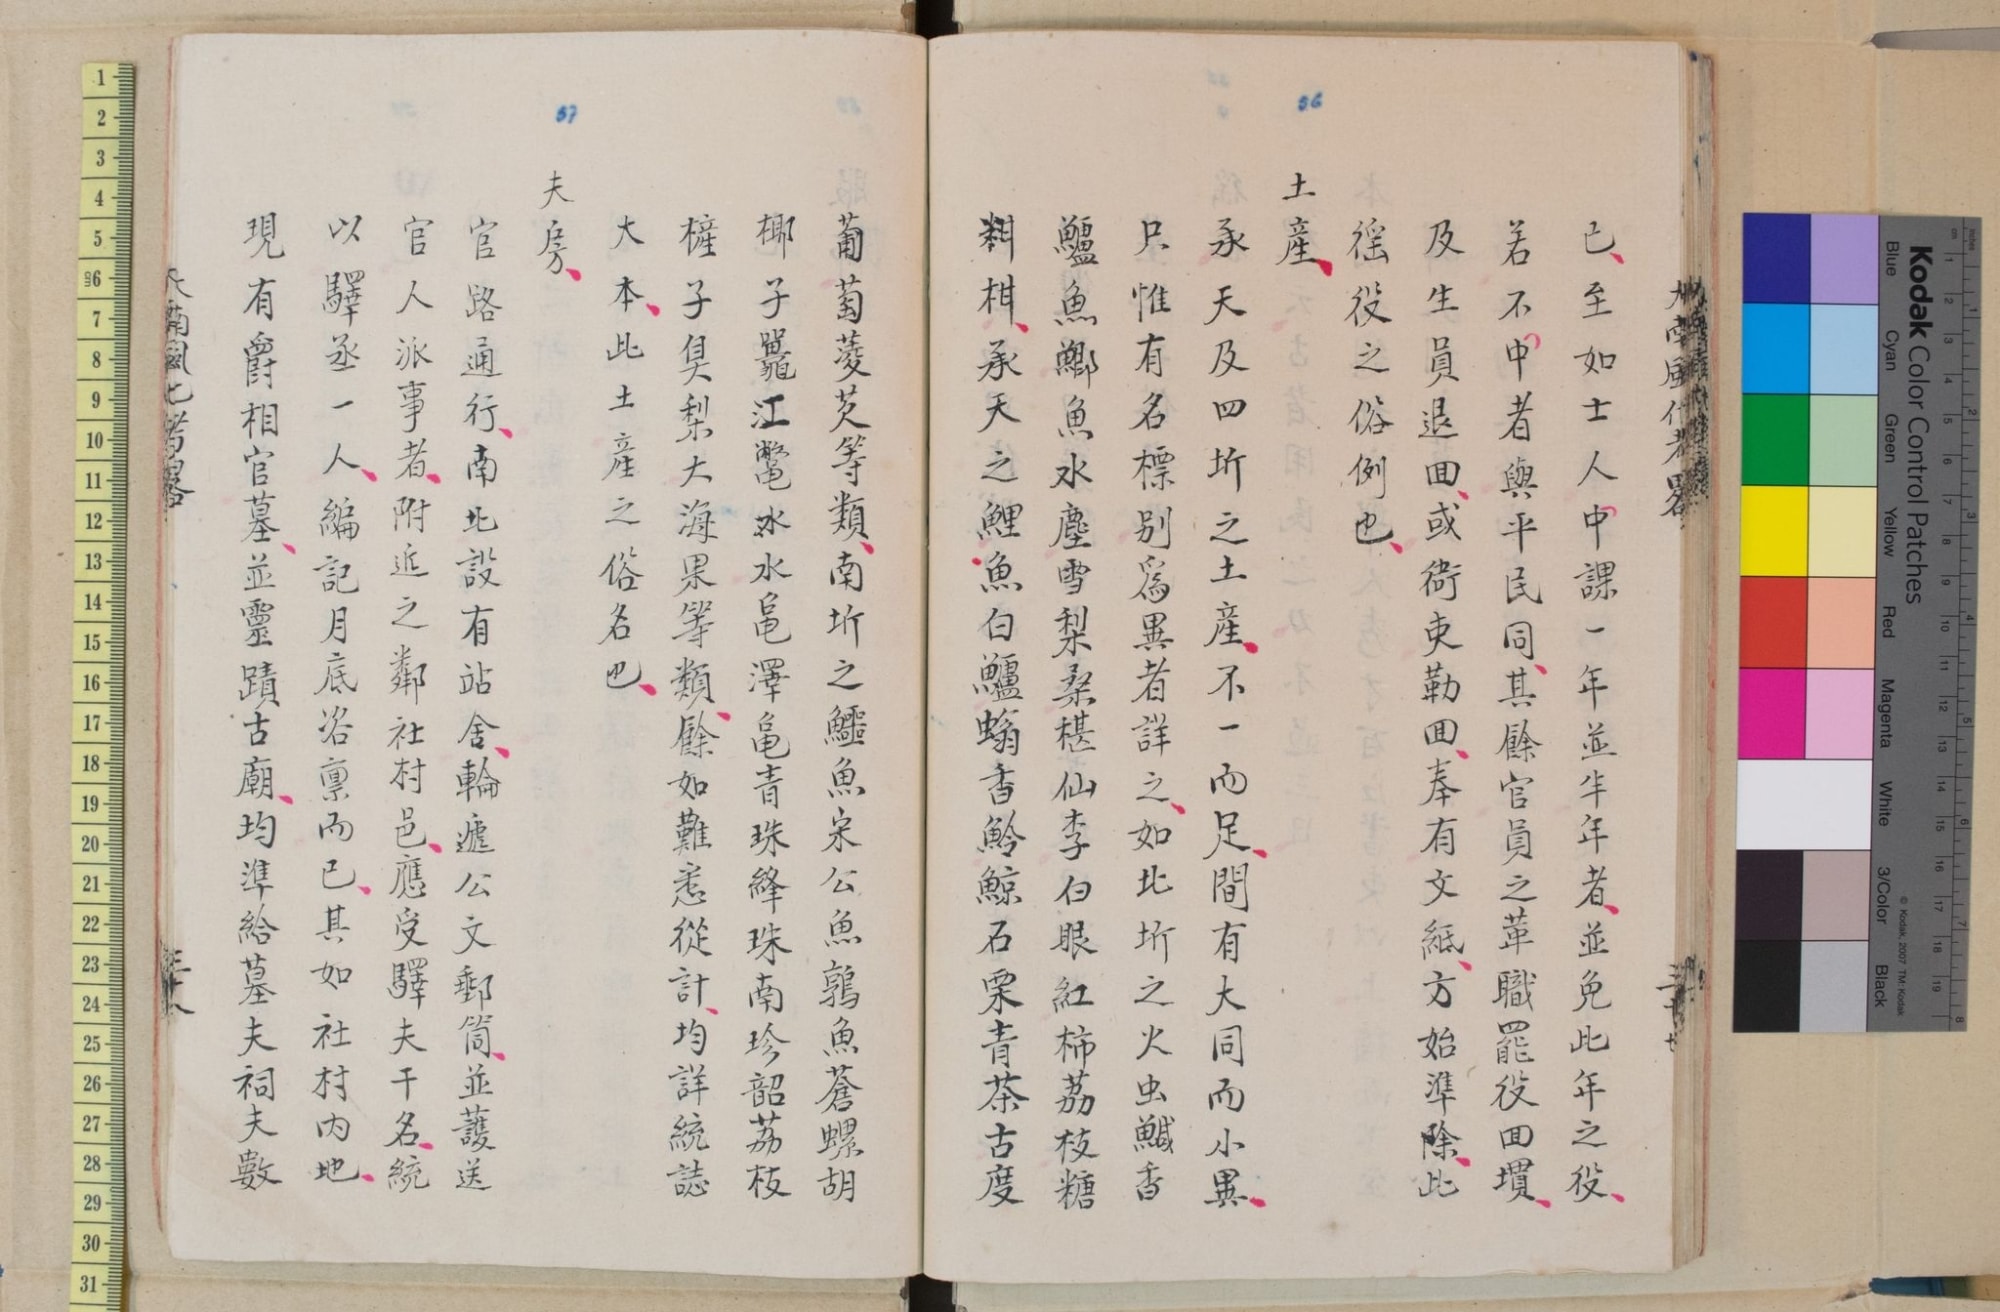 56
已至如士人中課一年並半年者並免此年之役
若不中者與平民同其餘官員之革職罷役回貫
及生員退回或衙吏勒回奉有文紙方始準除此
徭役之俗例也
土產
承天及四圻之土產不一而足間有大同而小異
只惟有名標别爲異者詳之如北圻之火虫鱵香
鱸魚鰤魚水塵雪梨桑椹仙李白眼紅柿荔枝糖
柑承天之鯉魚白鱸螉香魿鯨石栗青茶古度
57
葡萄菱芡等類南圻之鱷魚宋公魚鶉魚蒼螺胡
椰子鼉江鼈冰水黽澤黽青珠絳珠南珍韶荔枝
槯子臭梨大海果等類餘如難悉從計均詳統誌
大本此土產之俗名也
夫房
官路通行南北設有站舍輪遞公文郵筒並護送
官人派事者附近之鄰社村邑應受驛夫干名統
以驛丞一人編記月底咨稟而已其如社村内地
現有爵相官墓並靈蹟古廟均準給墓夫祠夫數
Kodak Color Control Patches
Blue Cyan Green Yellow Red Magenta White 3/Color Black
© Kodak, 2007 TM: Kodak